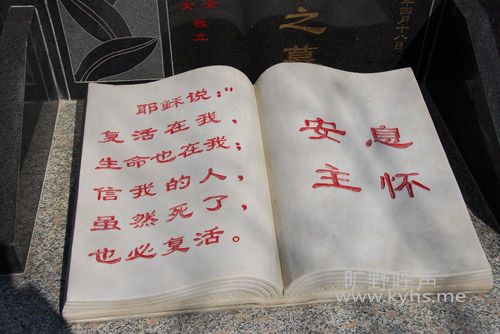 敬立
之墓
四月十八日
耶稣说："
复活在我，
生命也在我；
信我的人，
虽然死了，
也必复活。
安息
主怀
旷野呼声
www.kyhs.me